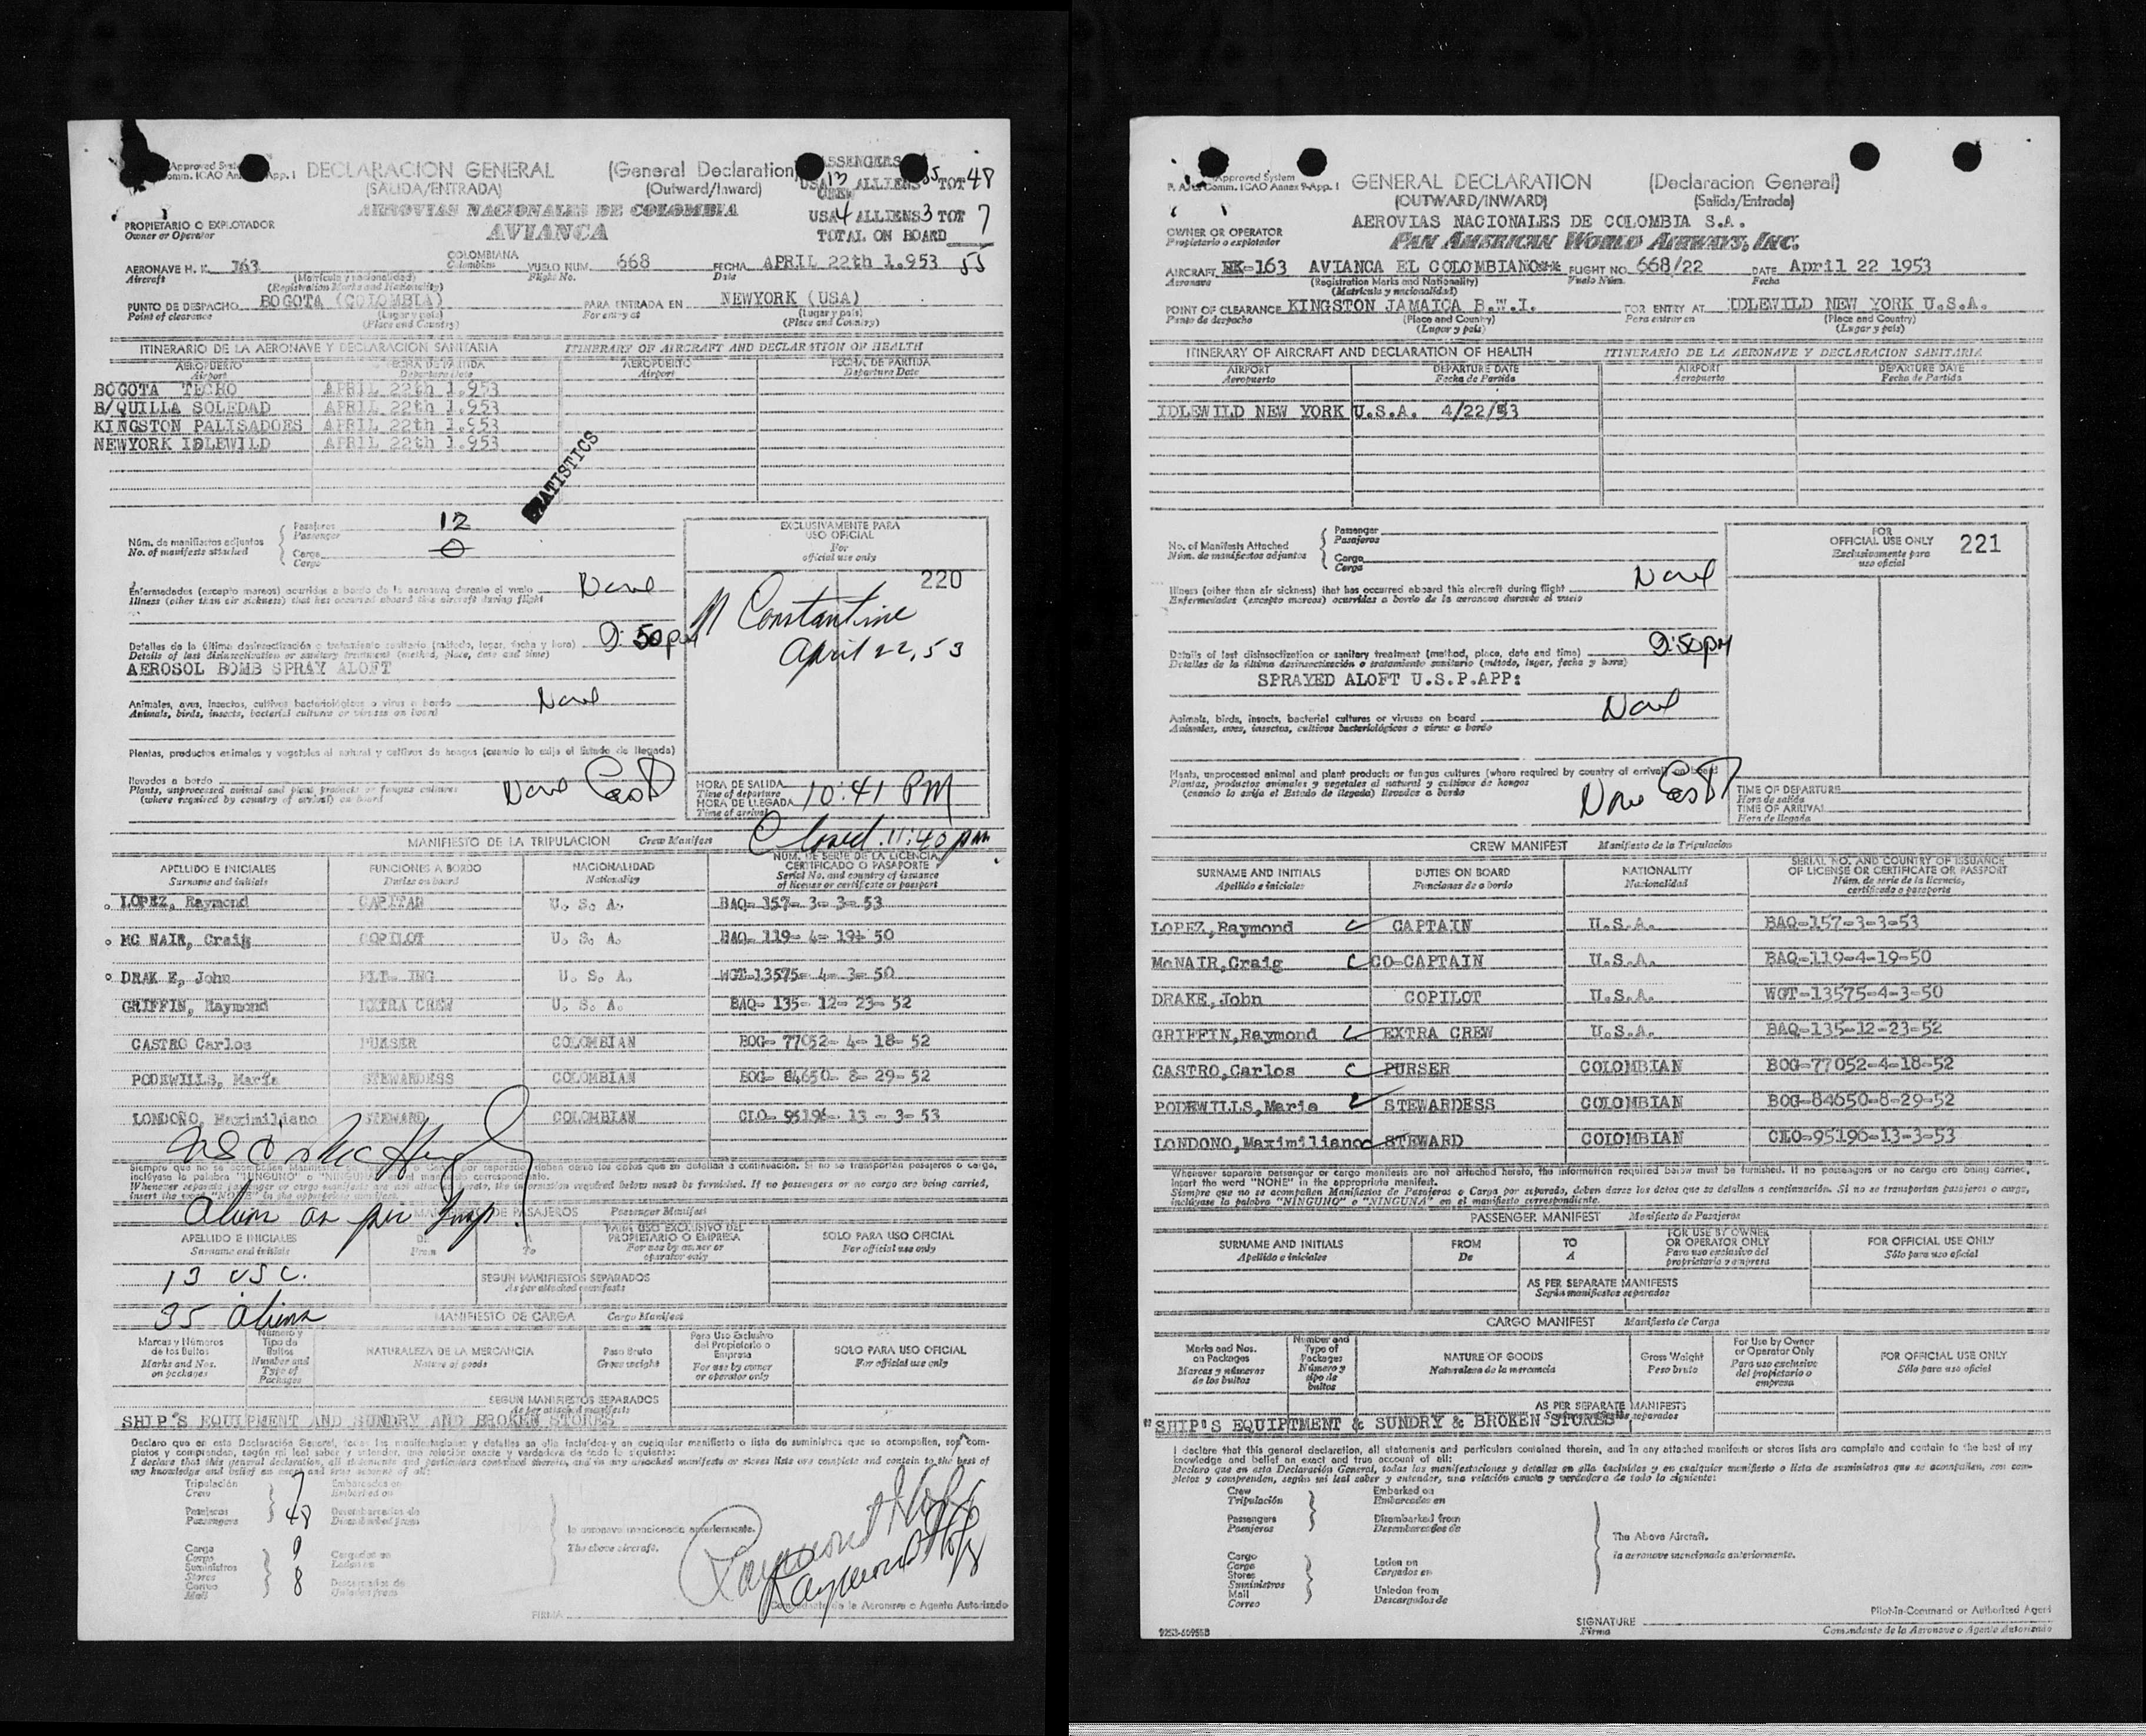 Approved System
Comm. ICAO Annex 9-App. I
DECLARACION GENERAL (General Declaration)
(SALIDA/ENTRADA) (Outward/Inward)
PASSENGERS
USA 13 ALLIENS 35 TOT 48
CREW
USA 4 ALLIENS 3 TOT 7
TOTAL ON BOARD 55
AEROVIAS NACIONALES DE COLOMBIA
AVIANCA
PROPIETARIO O EXPLOTADOR
Owner or Operator
AERONAVE H. K. 163 COLOMBIANA VUELO NUM. 668 FECHA APRIL 22th 1.953
Aircraft (Matrícula y nacionalidad) Colombian Flight No. Date
(Registration Marks and Nationality)
PUNTO DE DESPACHO BOGOTA (COLOMBIA) PARA ENTRADA EN NEWYORK (USA)
Point of clearance (Lugar y país) For entry at (Lugar y país)
(Place and Country) (Place and Country)
ITINERARIO DE LA AERONAVE Y DECLARACION SANITARIA ITINERARY OF AIRCRAFT AND DECLARATION OF HEALTH
AEROPUERTO FECHA DE PARTIDA AEROPUERTO FECHA DE PARTIDA
Airport Departure Date Airport Departure Date
BOGOTA TECHO APRIL 22th 1.953
B/QUILLA SOLEDAD APRIL 22th 1.953
KINGSTON PALISADOES APRIL 22th 1.953
NEWYORK IDLEWILD APRIL 22th 1.953
STATISTICS
Núm. de manifiestos adjuntos Pasajeros 12
No. of manifests attached Passenger
Carga 0
Cargo
EXCLUSIVAMENTE PARA
USO OFICIAL
For
official use only
220
Enfermedades (excepto mareos) ocurridas a bordo de la aeronave durante el vuelo None
Illness (other than air sickness) that has occurred aboard this aircraft during flight
M Constantine
April 22, 53
Detalles de la última desinsectización o tratamiento sanitario (método, lugar, fecha y hora) 9:50 pm
Details of last disinsectization or sanitary treatment (method, place, date and time)
AEROSOL BOMB SPRAY ALOFT
Animales, aves, insectos, cultivos bacteriológicos o virus a bordo None
Animals, birds, insects, bacterial cultures or viruses on board
Plantas, productos animales y vegetales al natural y cultivos de hongos (cuando lo exija el Estado de llegada)
llevados a bordo None
Plants, unprocessed animal and plant products or fungus cultures
(where required by country of arrival) on board
HORA DE SALIDA
Time of departure
HORA DE LLEGADA 10:41 PM
Time of arrival
Closed 11:40 pm
MANIFIESTO DE LA TRIPULACION Crew Manifest
APELLIDO E INICIALES FUNCIONES A BORDO NACIONALIDAD NUM. DE SERIE DE LA LICENCIA, CERTIFICADO O PASAPORTE
Surname and initials Duties on board Nationality Serial No. and country of issuance of license or certificate or passport
LOPEZ, Raymond CAPITAN U. S. A. BAQ- 157- 3- 3- 53
MC NAIR, Craig COPILOT U. S. A. BAQ- 119- 4- 19- 50
DRAK E, John FLT. ING U. S. A. WGT-13575- 4- 3- 50
GRIFFIN, Raymond EXTRA CREW U. S. A. BAQ- 135- 12- 23- 52
CASTRO Carlos PURSER COLOMBIAN BOG- 77052- 4- 18- 52
PODEWILLS, Maria STEWARDESS COLOMBIAN BOG- 84650- 8- 29- 52
LONDOÑO, Maximiliano STEWARD COLOMBIAN CLO- 95196- 13 - 3- 53
Siempre que no se acompañen Manifiestos de Pasajeros o Carga por separado, deben darse los datos que se detallan a continuación. Si no se transportan pasajeros o carga,
inclúyase la palabra "NINGUNO" o "NINGUNA" en el manifiesto correspondiente.
Whenever separate passenger or cargo manifests are not attached hereto, the information required below must be furnished. If no passengers or no cargo are being carried,
insert the word "NONE" in the appropriate manifest.
MANIFIESTO DE PASAJEROS Passenger Manifest
APELLIDO E INICIALES DE A PARA USO EXCLUSIVO DEL PROPIETARIO O EMPRESA SOLO PARA USO OFICIAL
Surname and initials From To For use by owner or operator only For official use only
13 USC.
SEGUN MANIFIESTOS SEPARADOS
As per attached manifests
35 aliens
MANIFIESTO DE CARGA Cargo Manifest
Marcas y Números de los Bultos Número y Tipo de Bultos NATURALEZA DE LA MERCANCIA Peso Bruto Para Uso Exclusivo del Propietario o Empresa SOLO PARA USO OFICIAL
Marks and Nos. on packages Number and Type of Packages Nature of goods Gross weight For use by owner or operator only For official use only
SEGUN MANIFIESTOS SEPARADOS
As per attached manifests
SHIP'S EQUIPMENT AND SUNDRY AND BROKEN STORES
Declaro que en esta Declaración General, todas las manifestaciones y detalles en ella incluídos y en cualquier manifiesto o lista de suministros que se acompañen, son com-
pletos y comprenden, según mi leal saber y entender, una relación exacta y verdadera de todo lo siguiente:
I declare that this general declaration, all statements and particulars contained therein, and in any attached manifests or stores lists are complete and contain to the best of
my knowledge and belief an exact and true account of all:
Tripulación 7 Embarcados en
Crew Embarked on
Pasajeros 48 Desembarcados de
Passengers Disembarked from
la aeronave mencionada anteriormente.
The above aircraft.
Carga
Cargo Cargados en
Suministros Laden on
Stores
Correo 8 Descargados de
Mail Unladen from
FIRMA
Comandante de la Aeronave o Agente Autorizado
Approved System
Comm. ICAO Annex 9-App. I
GENERAL DECLARATION (Declaracion General)
(OUTWARD/INWARD) (Salida/Entrada)
AEROVIAS NACIONALES DE COLOMBIA S.A.
OWNER OR OPERATOR PAN AMERICAN WORLD AIRWAYS, INC.
Propietario o explotador
AIRCRAFT HK-163 AVIANCA EL COLOMBIANO*** FLIGHT NO. 668/22 DATE April 22 1953
Aeronave (Registration Marks and Nationality) Vuelo Núm. Fecha
(Matrícula y nacionalidad)
POINT OF CLEARANCE KINGSTON JAMAICA B.W.I. FOR ENTRY AT IDLEWILD NEW YORK U.S.A.
Punto de despacho (Place and Country) Para entrar en (Place and Country)
(Lugar y país) (Lugar y país)
ITINERARY OF AIRCRAFT AND DECLARATION OF HEALTH ITINERARIO DE LA AERONAVE Y DECLARACION SANITARIA
AIRPORT DEPARTURE DATE AIRPORT DEPARTURE DATE
Aeropuerto Fecha de Partida Aeropuerto Fecha de Partida
IDLEWILD NEW YORK U.S.A. 4/22/53
No. of Manifests Attached Passenger
Núm. de manifiestos adjuntos Pasajeros
Cargo
Carga
FOR
OFFICIAL USE ONLY 221
Exclusivamente para
uso oficial
Illness (other than air sickness) that has occurred aboard this aircraft during flight None
Enfermedades (excepto mareos) ocurridas a bordo de la aeronave durante el vuelo
Details of last disinsectization or sanitary treatment (method, place, date and time) 9:50 pm
Detalles de la última desinsectización o tratamiento sanitario (método, lugar, fecha y hora)
SPRAYED ALOFT U.S.P.APP:
Animals, birds, insects, bacterial cultures or viruses on board None
Animales, aves, insectos, cultivos bacteriológicos o virus a bordo
Plants, unprocessed animal and plant products or fungus cultures (where required by country of arrival) on board
Plantas, productos animales y vegetales al natural y cultivos de hongos
(cuando lo exija el Estado de llegada) llevados a bordo None
TIME OF DEPARTURE
Hora de salida
TIME OF ARRIVAL
Hora de llegada
CREW MANIFEST Manifiesto de la Tripulacion
SURNAME AND INITIALS DUTIES ON BOARD NATIONALITY SERIAL NO. AND COUNTRY OF ISSUANCE OF LICENSE OR CERTIFICATE OR PASSPORT
Apellido e iniciales Funciones de a bordo Nacionalidad Núm. de serie de la licencia, certificado o pasaporte
LOPEZ,Raymond CAPTAIN U.S.A. BAQ-157-3-3-53
McNAIR,Craig CO-CAPTAIN U.S.A. BAQ-119-4-19-50
DRAKE,John COPILOT U.S.A. WGT-13575-4-3-50
GRIFFIN,Raymond EXTRA CREW U.S.A. BAQ-135-12-23-52
CASTRO,Carlos PURSER COLOMBIAN BOG-77052-4-18-52
PODEWILLS,Maria STEWARDESS COLOMBIAN BOG-84650-8-29-52
LONDONO,Maximiliano STEWARD COLOMBIAN CLO-95196-13-3-53
Whenever separate passenger or cargo manifests are not attached hereto, the information required below must be furnished. If no passengers or no cargo are being carried,
insert the word "NONE" in the appropriate manifest.
Siempre que no se acompañen Manifiestos de Pasajeros o Carga por separado, deben darse los datos que se detallan a continuación. Si no se transportan pasajeros o carga,
inclúyase la palabra "NINGUNO" o "NINGUNA" en el manifiesto correspondiente.
PASSENGER MANIFEST Manifiesto de Pasajeros
SURNAME AND INITIALS FROM TO FOR USE BY OWNER OR OPERATOR ONLY FOR OFFICIAL USE ONLY
Apellido e iniciales De A Para uso exclusivo del propietario y empresa Sólo para uso oficial
AS PER SEPARATE MANIFESTS
Según manifiestos separados
CARGO MANIFEST Manifiesto de Carga
Marks and Nos. on Packages Number and Type of Packages NATURE OF GOODS Gross Weight For Use by Owner or Operator Only FOR OFFICIAL USE ONLY
Marcas y números de los bultos Número y tipo de bultos Naturaleza de la mercancia Peso bruto Para uso exclusivo del propietario o empresa Sólo para uso oficial
AS PER SEPARATE MANIFESTS
Según manifiestos separados
"SHIP'S EQUIPTMENT & SUNDRY & BROKEN STORES"
I declare that this general declaration, all statements and particulars contained therein, and in any attached manifests or stores lists are complete and contain to the best of my
knowledge and belief an exact and true account of all:
Declaro que en esta Declaración General, todas las manifestaciones y detalles en ella incluídos y en cualquier manifiesto o lista de suministros que se acompañen, son com-
pletos y comprenden, según mi leal saber y entender, una relación exacta y verdadera de todo lo siguiente:
Crew Embarked on
Tripulación Embarcados en
Passengers Disembarked from
Pasajeros Desembarcados de
The Above Aircraft.
la aeronave mencionada anteriormente.
Cargo Laden on
Carga Cargados en
Stores
Suministros Unladen from
Mail Descargados de
Correo
SIGNATURE
Firma
Pilot-in-Command or Authorized Agent
Comandante de la Aeronave o Agente Autorizado